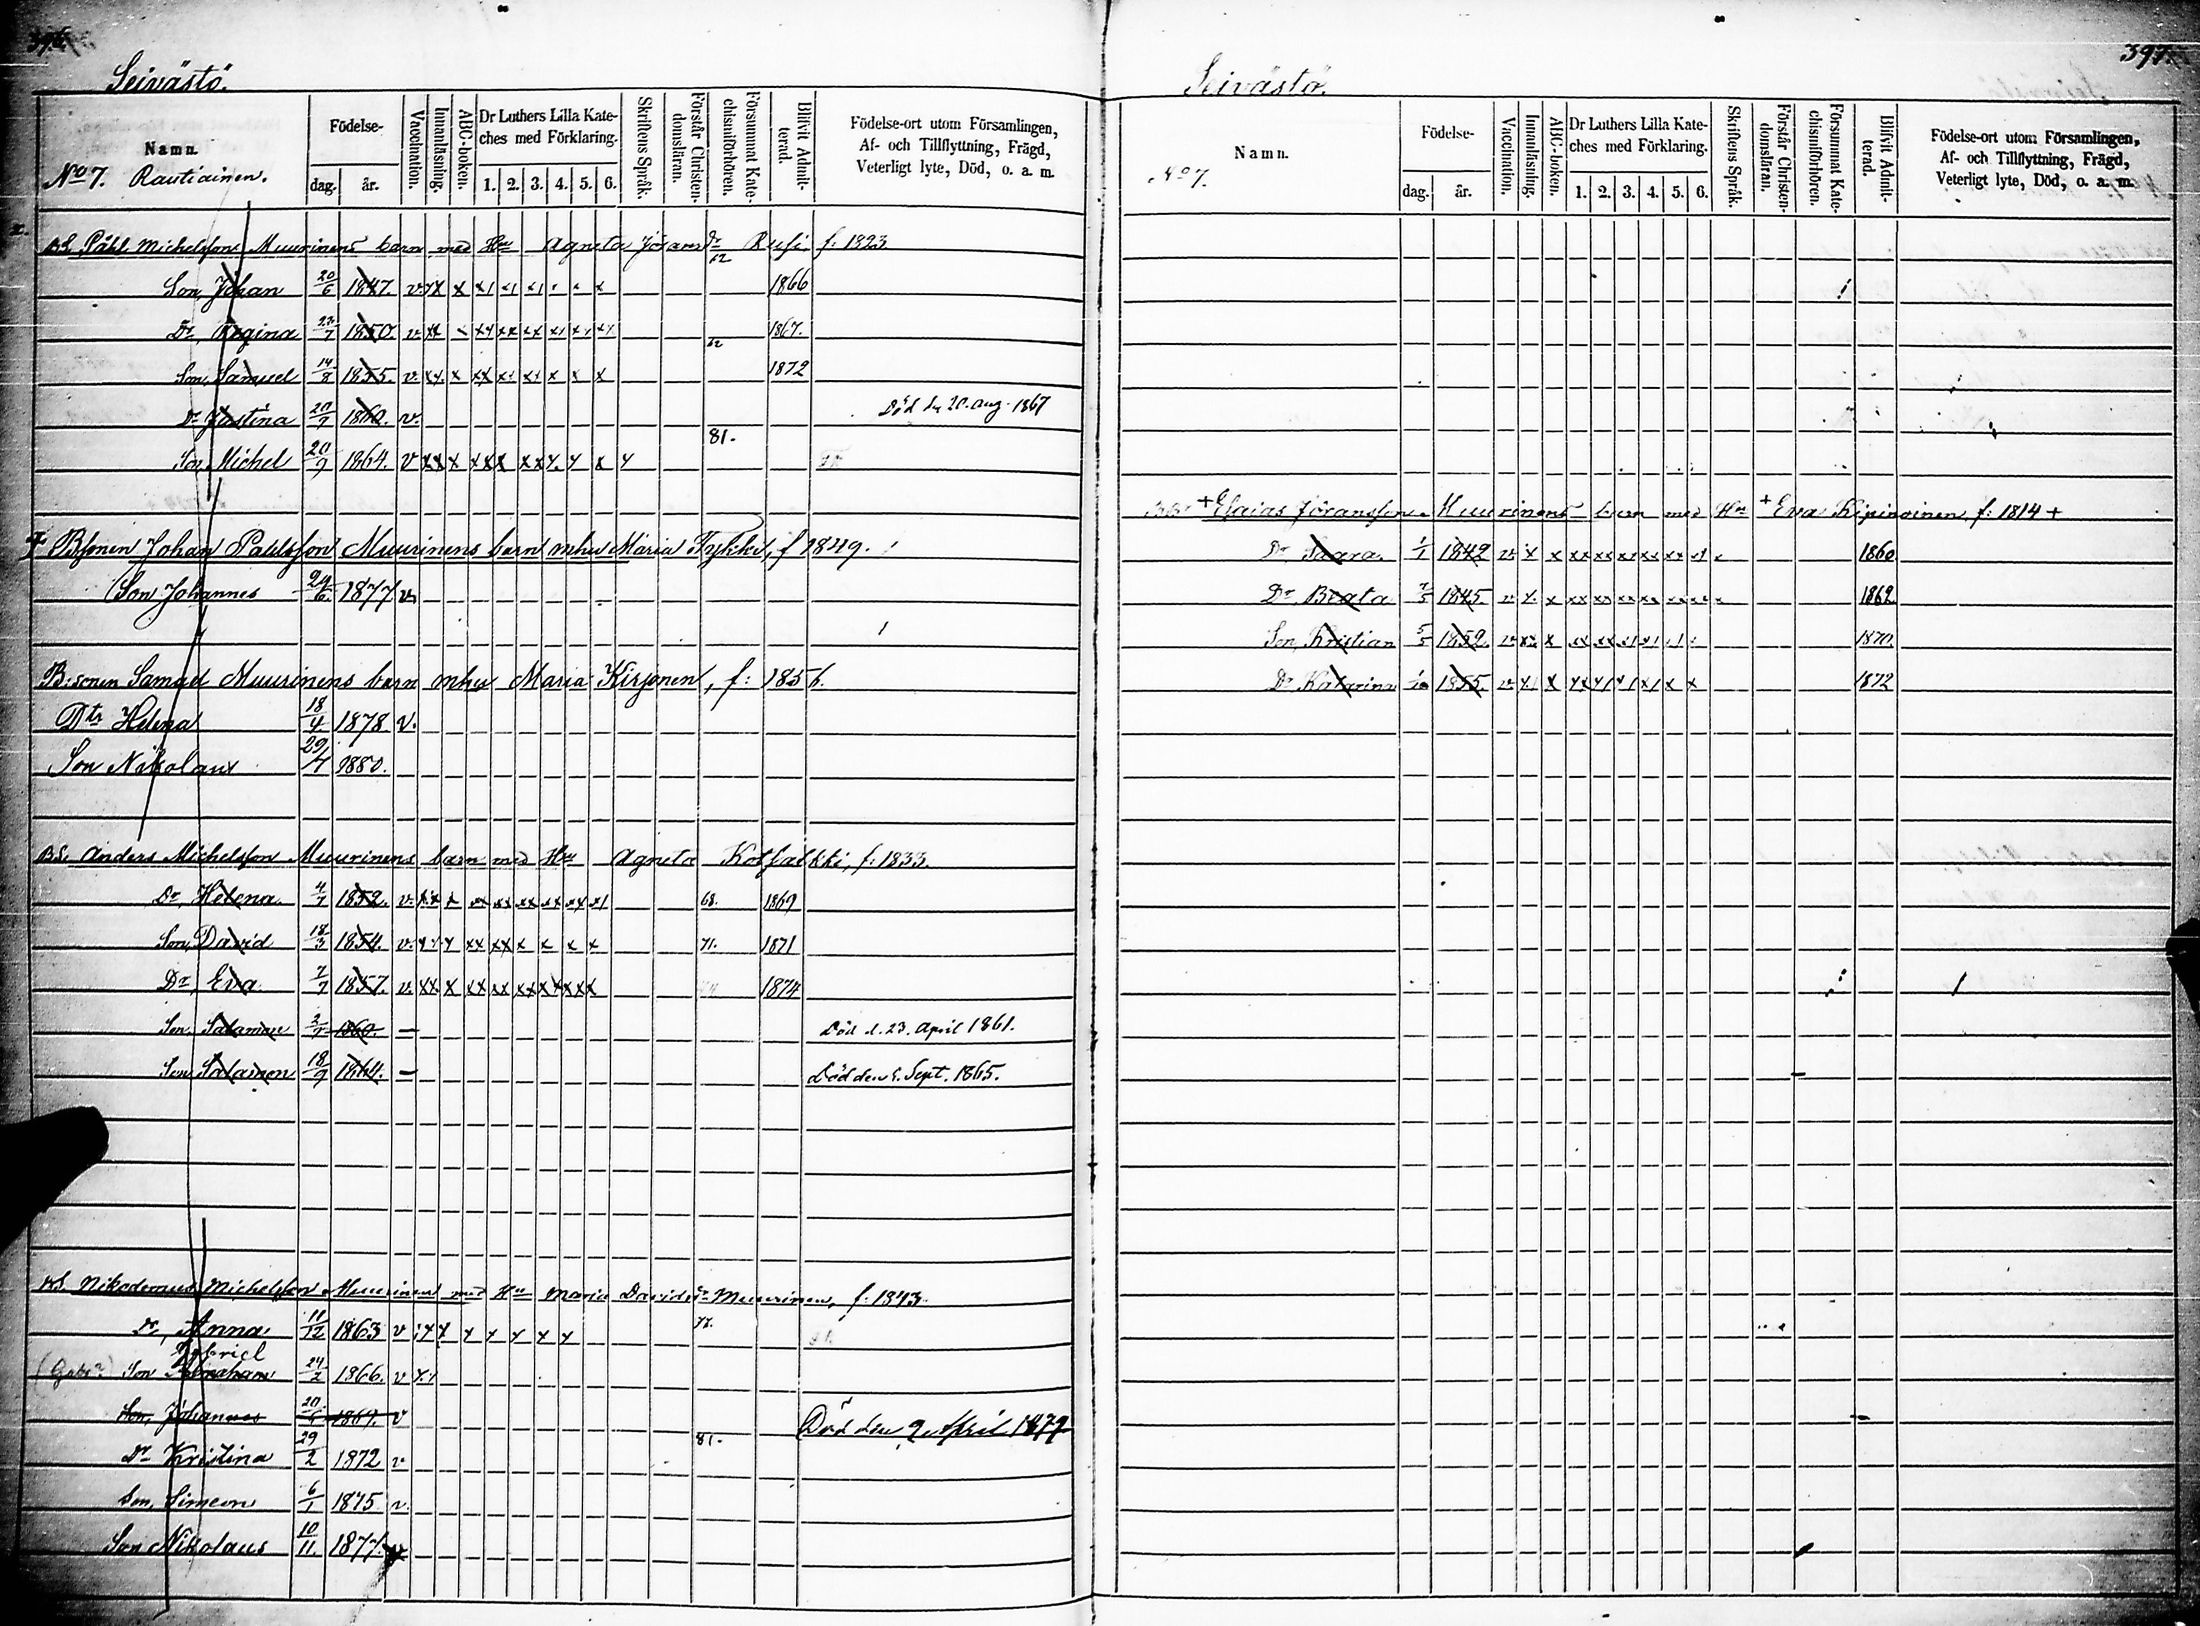 396.
Seivästö.
Namn.
No 7. Rautiainen.
Födelse-
dag. år.
Vaccination.
Innanläsning.
ABC-boken.
Dr Luthers Lilla Kate-
ches med Förklaring.
1. 2. 3. 4. 5. 6.
Skriftens Språk.
Förstår Christen-
domsläran.
Försummat Kate-
chismiförhören.
Blifvit Admit-
terad.
Födelse-ort utom Församlingen,
Af- och Tillflyttning, Frägd,
Veterligt lyte, Död, o. a. m.
BS. Påhl Michelsson Muurinens barn med Hu Agneta Jöransdr Rusi f: 1823
Son, Johan 20/6 1847. v xx x x1 x1 x1 x x x 62 1866
Dr, Regina 23/7 1850. v. xx - xx xx xx x1 xx x1 1867.
Son, Samuel 14/8 1855. v. xx. x xx xx xx x x x 62 1872
Dr Justina 20/9 1860. v. Död den 20. aug. 1867
Son, Michel 20/9 1864. v xx x xxx xxx. x x x 81.
BSonen Johan Pahlsson Muurinens barn mhu Maria Tykkä, f 1849.
(Son Johannes 24/6. 1877 v
B:sonen Samuel Muurinens barn mhu Maria Kirjonen, f: 1856.
Dtr Helena 18/4. 1878 v.
Son Nikolaus 29/7 1880.
BS. Anders Michelsson Muurinens barn med Hu Agneta Kotsalkki, f: 1833.
Dr, Helena 4/7 1852. v. xx x xx xx xx xx xx x1 68. 1869
Son, David 18/3 1854. v. x x x xx xx x x x x 71. 1871
Dr, Eva 7/7 1857. v. xx x xx xx xx xx x x 1874
Son, Salamon 2/7 1860. - Död d. 23. April 1861.
Son Salamon 18/9 1864. - Död den 5. Sept. 1865.
BS. Nikodemus Michelsson Muurinen med Hu Maria Davidsdr Muurinen, f: 1843.
Dr, Anna 11/12 1863 v x x x x x x x 77.
Gabriel
(Gabr?) Son Abraham 24/2 1866. v x1
Son, Johannes 20/5 1869. v Död den 9 April 1879
Dr Kristina 29/2 1872 v 81.
Son, Simeon 6/1 1875 v.
Son Nikolaus 10/11. 1877. v
397.
Seivästö.
Namn.
No 7.
Födelse-
dag. år.
Vaccination.
Innanläsning.
ABC-boken.
Dr Luthers Lilla Kate-
ches med Förklaring.
1. 2. 3. 4. 5. 6.
Skriftens Språk.
Förstår Christen-
domsläran.
Försummat Kate-
chismiförhören.
Blifvit Admit-
terad.
Födelse-ort utom Församlingen,
Af- och Tillflyttning, Frägd,
Veterligt lyte, Död, o. a. m.
+ Esaias Jöransson Muurinens barn med Hu + Eva Kipinoinen, f: 1814 +
Dr Saara. 1/1 1842 v. x x xx xx xx xx xx x1 x 1860
Dr, Beata 7/5 1845. v x. x xx xx xx xx xx xx x 1862
Son, Kristian 5/5 1852. v xx. x xx xx x1 x1 1 1 1870.
Dr Katarina 1/10 1855. v. x1 x xx x1 x1 x1 x x 1872